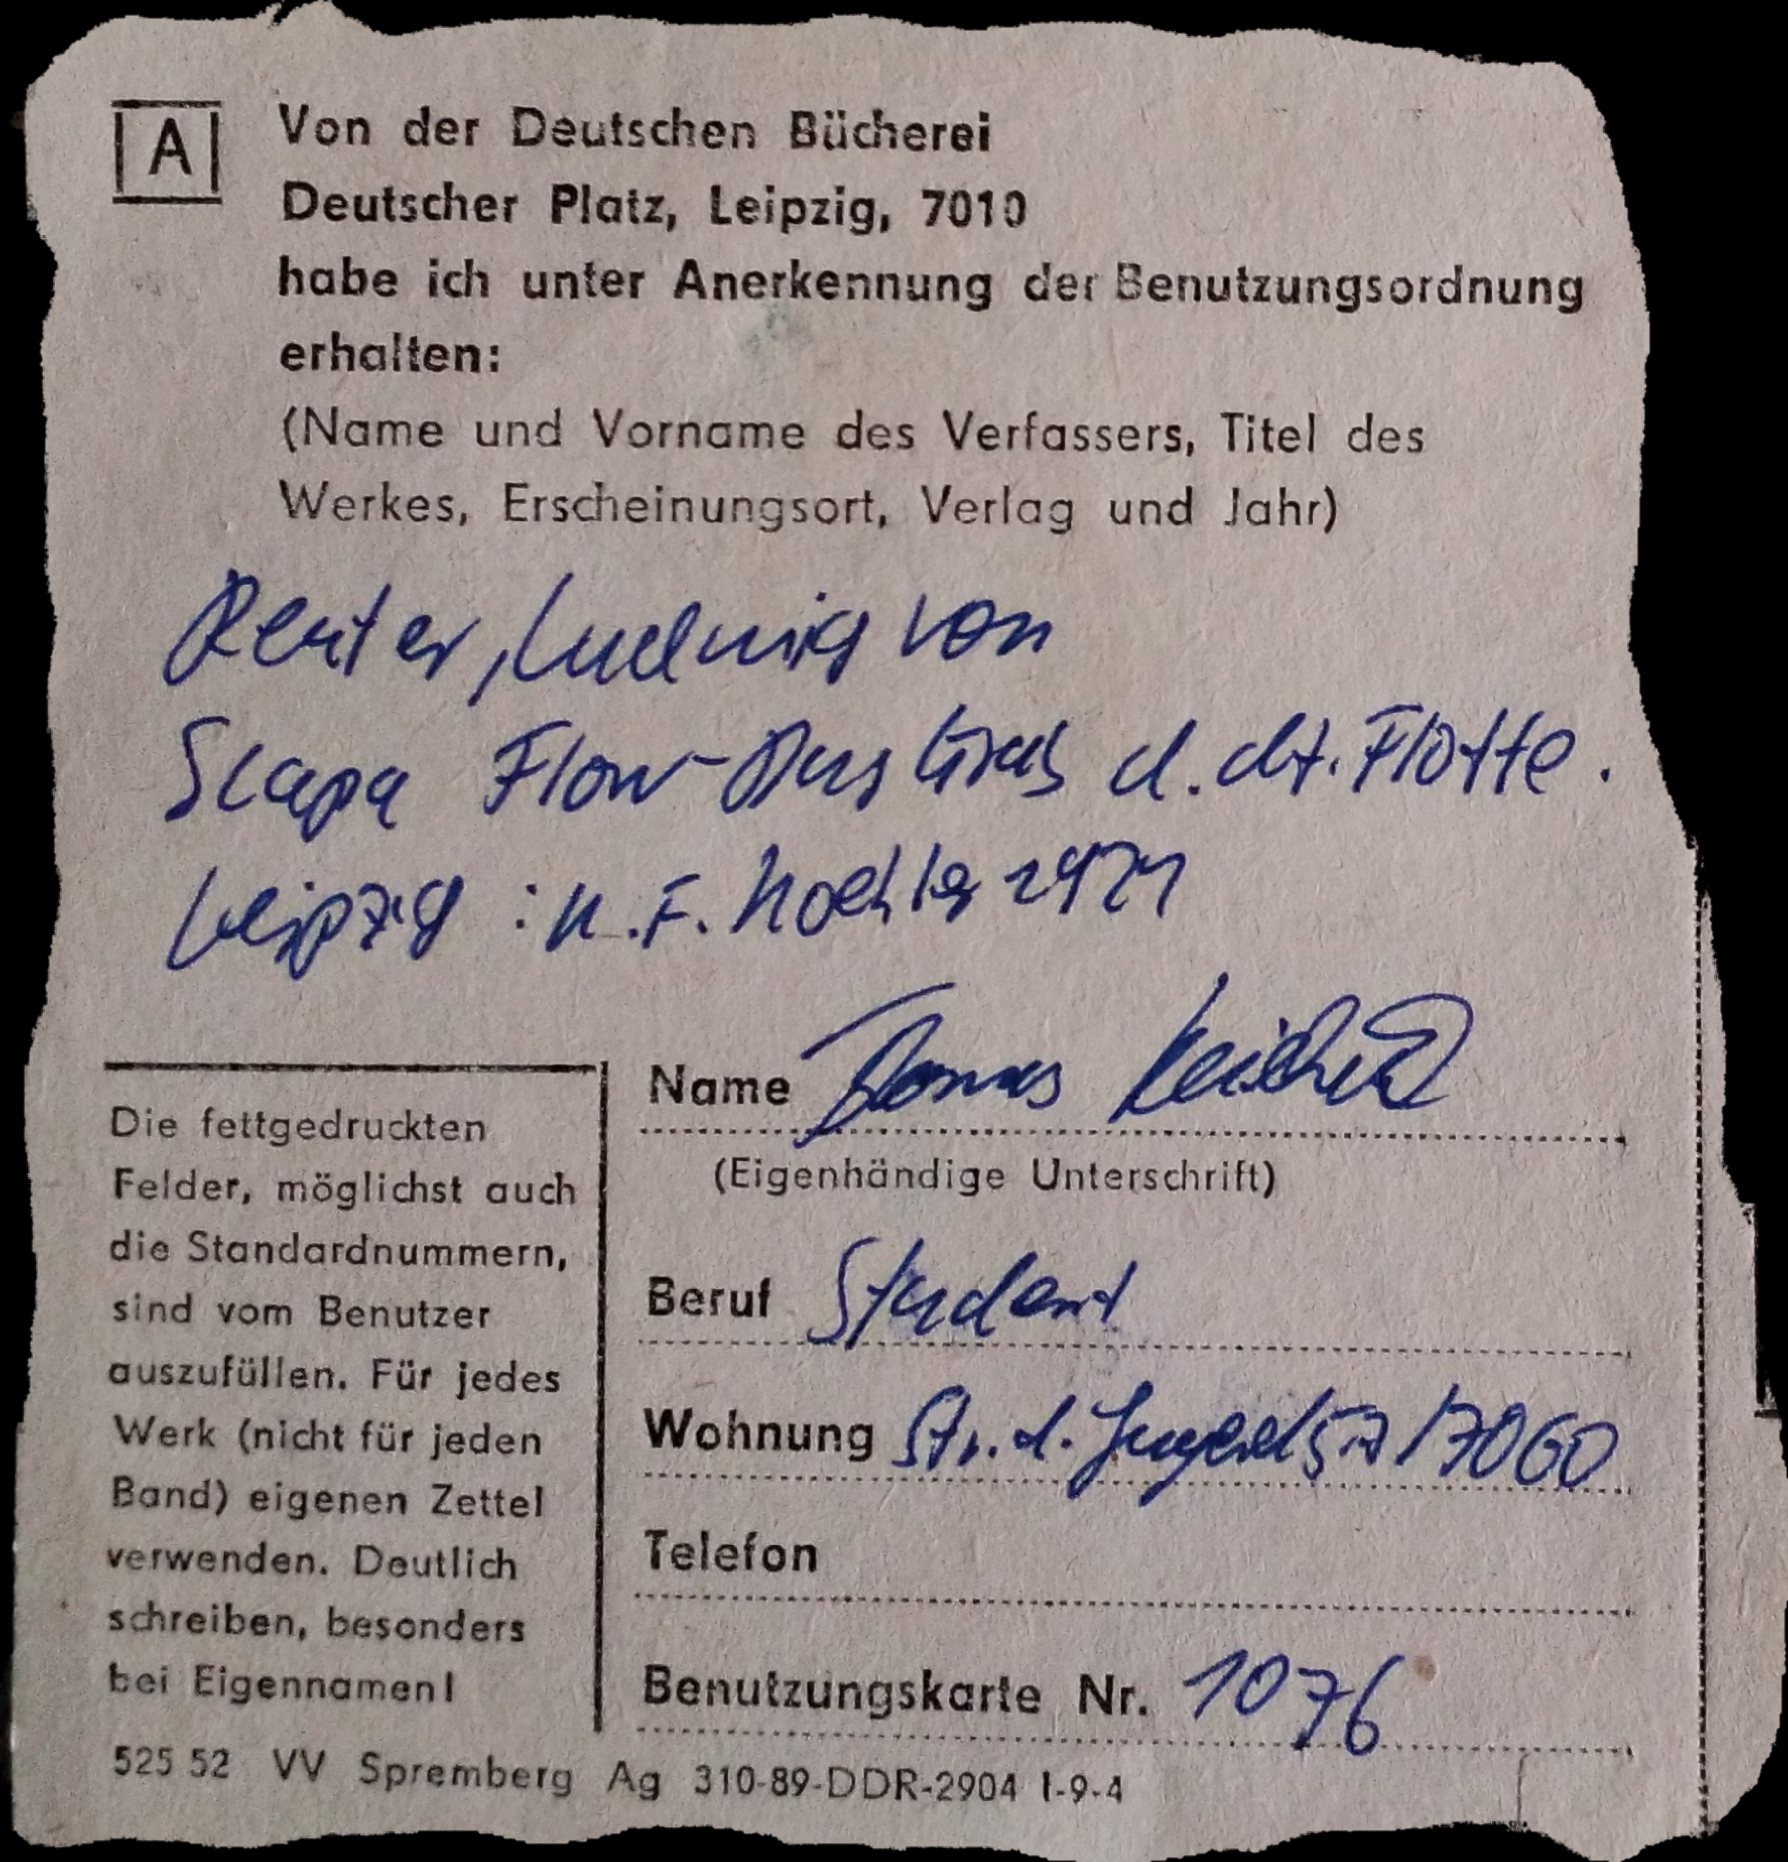 A
Von der Deutschen Bücherei
Deutscher Platz, Leipzig, 7010
habe ich unter Anerkennung der Benutzungsordnung
erhalten:
(Name und Vorname des Verfassers, Titel des
Werkes, Erscheinungsort, Verlag und Jahr)
Reuter, Ludwig von
Scapa Flow - Das Grab d. dt. Flotte.
Leipzig : K. F. Koehler 1921
Die fettgedruckten
Felder, möglichst auch
die Standardnummern,
sind vom Benutzer
auszufüllen. Für jedes
Werk (nicht für jeden
Band) eigenen Zettel
verwenden. Deutlich
schreiben, besonders
bei Eigennamen!
Name Thomas
(Eigenhändige Unterschrift)
Beruf Student
Wohnung Str. d. Jugend 7060
Telefon
Benutzungskarte Nr. 1076
525 52 VV Spremberg Ag 310-89-DDR-2904 I-9-4